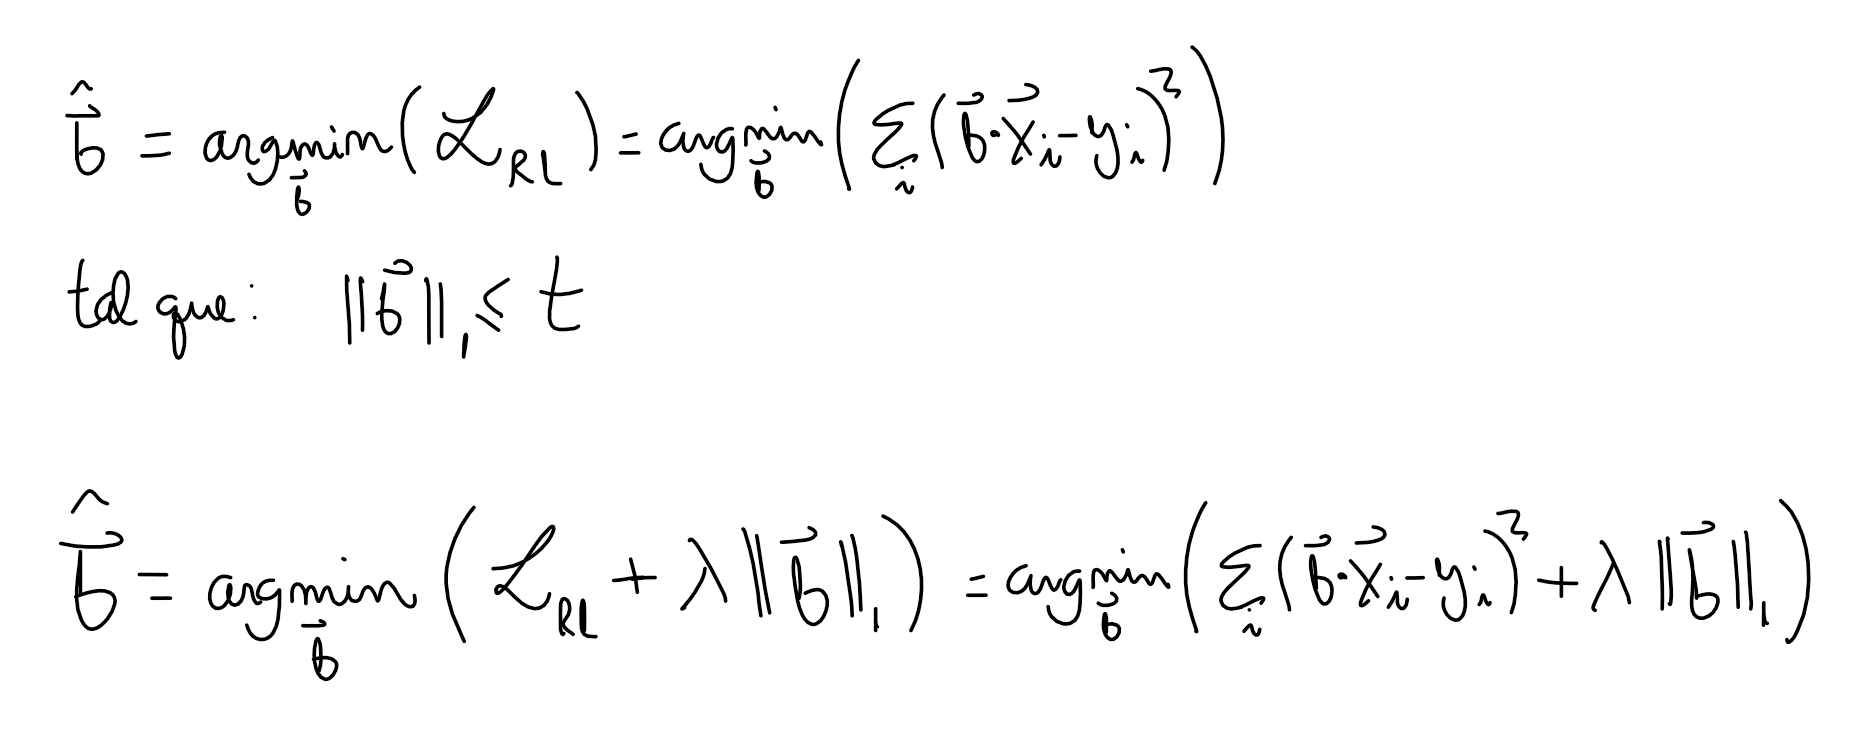 $\hat{\vec{b}} = \underset{\vec{b}}{\text{argmin}}\left(\mathcal{L}_{RL}\right) = \underset{\vec{b}}{\text{argmin}}\left(\sum_i (\vec{b}\cdot\vec{x}_i - y_i)^2\right)$
tal que: $\|\vec{b}\|_1 \leqslant t$
$\hat{\vec{b}} = \underset{\vec{b}}{\text{argmin}}\left(\mathcal{L}_{RL} + \lambda \|\vec{b}\|_1\right) = \underset{\vec{b}}{\text{argmin}}\left(\sum_i (\vec{b}\cdot\vec{x}_i - y_i)^2 + \lambda \|\vec{b}\|_1\right)$